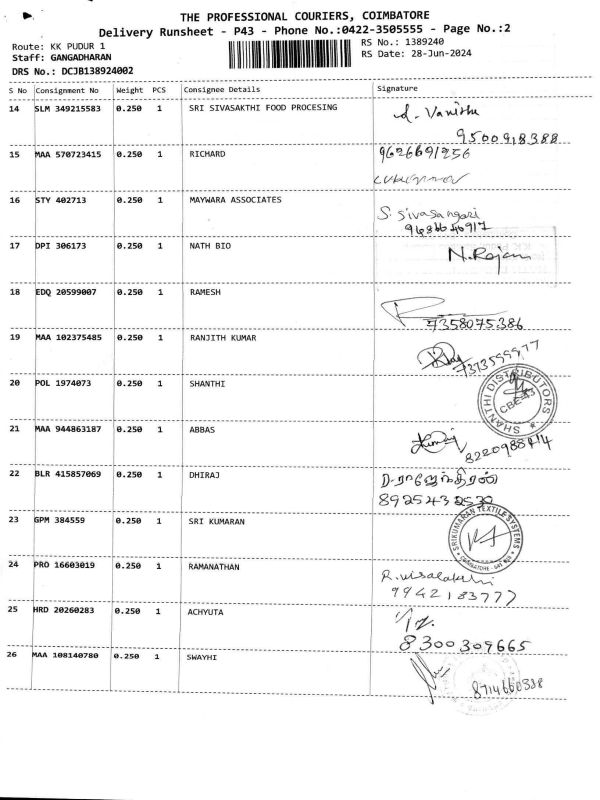 THE PROFESSIONAL COURIERS, COIMBATORE
Delivery Runsheet - P43 - Phone No.:0422-3505555 - Page No.:2
Route: KK PUDUR 1
Staff: GANGADHARAN
DRS No.: DCJB138924002
RS No.: 1389240
RS Date: 28-Jun-2024
S No Consignment No Weight PCS Consignee Details Signature
14 SLM 349215583 0.250 1 SRI SIVASAKTHI FOOD PROCESING
9500918388
15 MAA 570723415 0.250 1 RICHARD 9626691256
16 STY 402713 0.250 1 MAYWARA ASSOCIATES S. Sivasangari
17 DPI 306173 0.250 1 NATH BIO N. Rajan
18 EDQ 20599007 0.250 1 RAMESH
7358075386
19 MAA 102375485 0.250 1 RANJITH KUMAR
7373599977
20 POL 1974073 0.250 1 SHANTHI
SHANTHI DISTRIBUTORS
CBE-43
21 MAA 944863187 0.250 1 ABBAS
8220988414
22 BLR 415857069 0.250 1 DHIRAJ
23 GPM 384559 0.250 1 SRI KUMARAN
SRIKUMARAN TEXTILE SYSTEMS
24 PRO 16603019 0.250 1 RAMANATHAN R. Visalakshi
9942183777
25 HRD 20260283 0.250 1 ACHYUTA
8300309665
26 MAA 108140780 0.250 1 SWAYHI